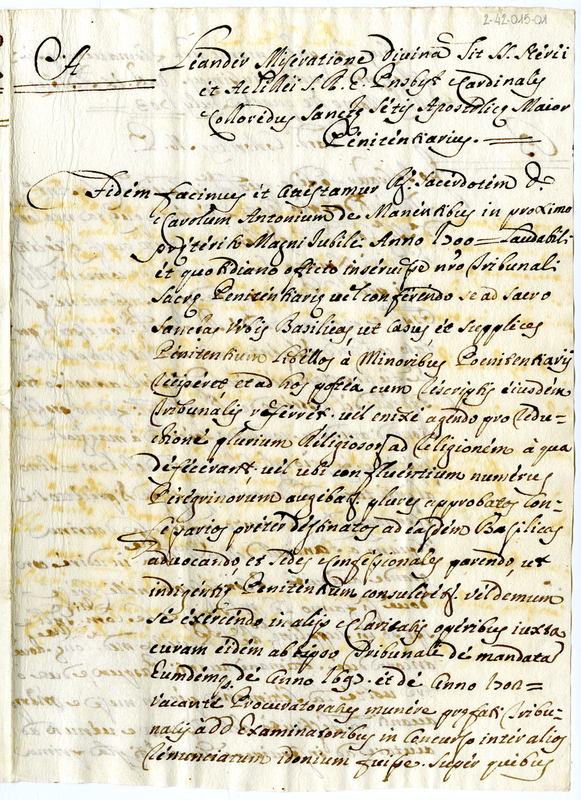 2-42-015-01
A
Leander Miseratione Divina Tit SS. Nerei
et Achillei S. R. E. Presbyt Cardinalis
Colloredus Sanctę Sedis Apostolicę Maior
Penitentiarius.
Fidem facimus et Sacerdotem D.
Carolum Antonium de Manentibus in proximo
pręterito Magni Jubilei Anno 1700 = Laudabili
et quotidiano officio inservisse nro Tribunali
Sacrę Penitentiarię vel conferendo se ad Sacro
Sanctas Urbis Basilicas, ut Casus et supplices
Penitentium libellos à Minoribus Poenitentiarijs
reciperet et ad hos postea cum rescriptis eiusdem
Tribunalis referret. vel enixe agendo pro redu-
ctione plurium Religiosor ad Religionem à qua
defecerant vel ubi confluentium numerus
Peregrinorum augebat. plures approbatos Con-
fessarios pręter destinatos ad easdem Basilicas
advocando et sedes confessionales parando, ut
indigentię Penitentium consuleret. vel demum
se exercendo in alijs Charitatis operibus iuxta
curam eidem ab ipso Tribunale demandata
Eumdemq. de Anno 1697. et de Anno 1702 =
vacante Procuratoratus munere prefati Tribu-
nalis ab Examinatoribus in Concurso inter alios
renunciatum idoneum fuisse. super quibus